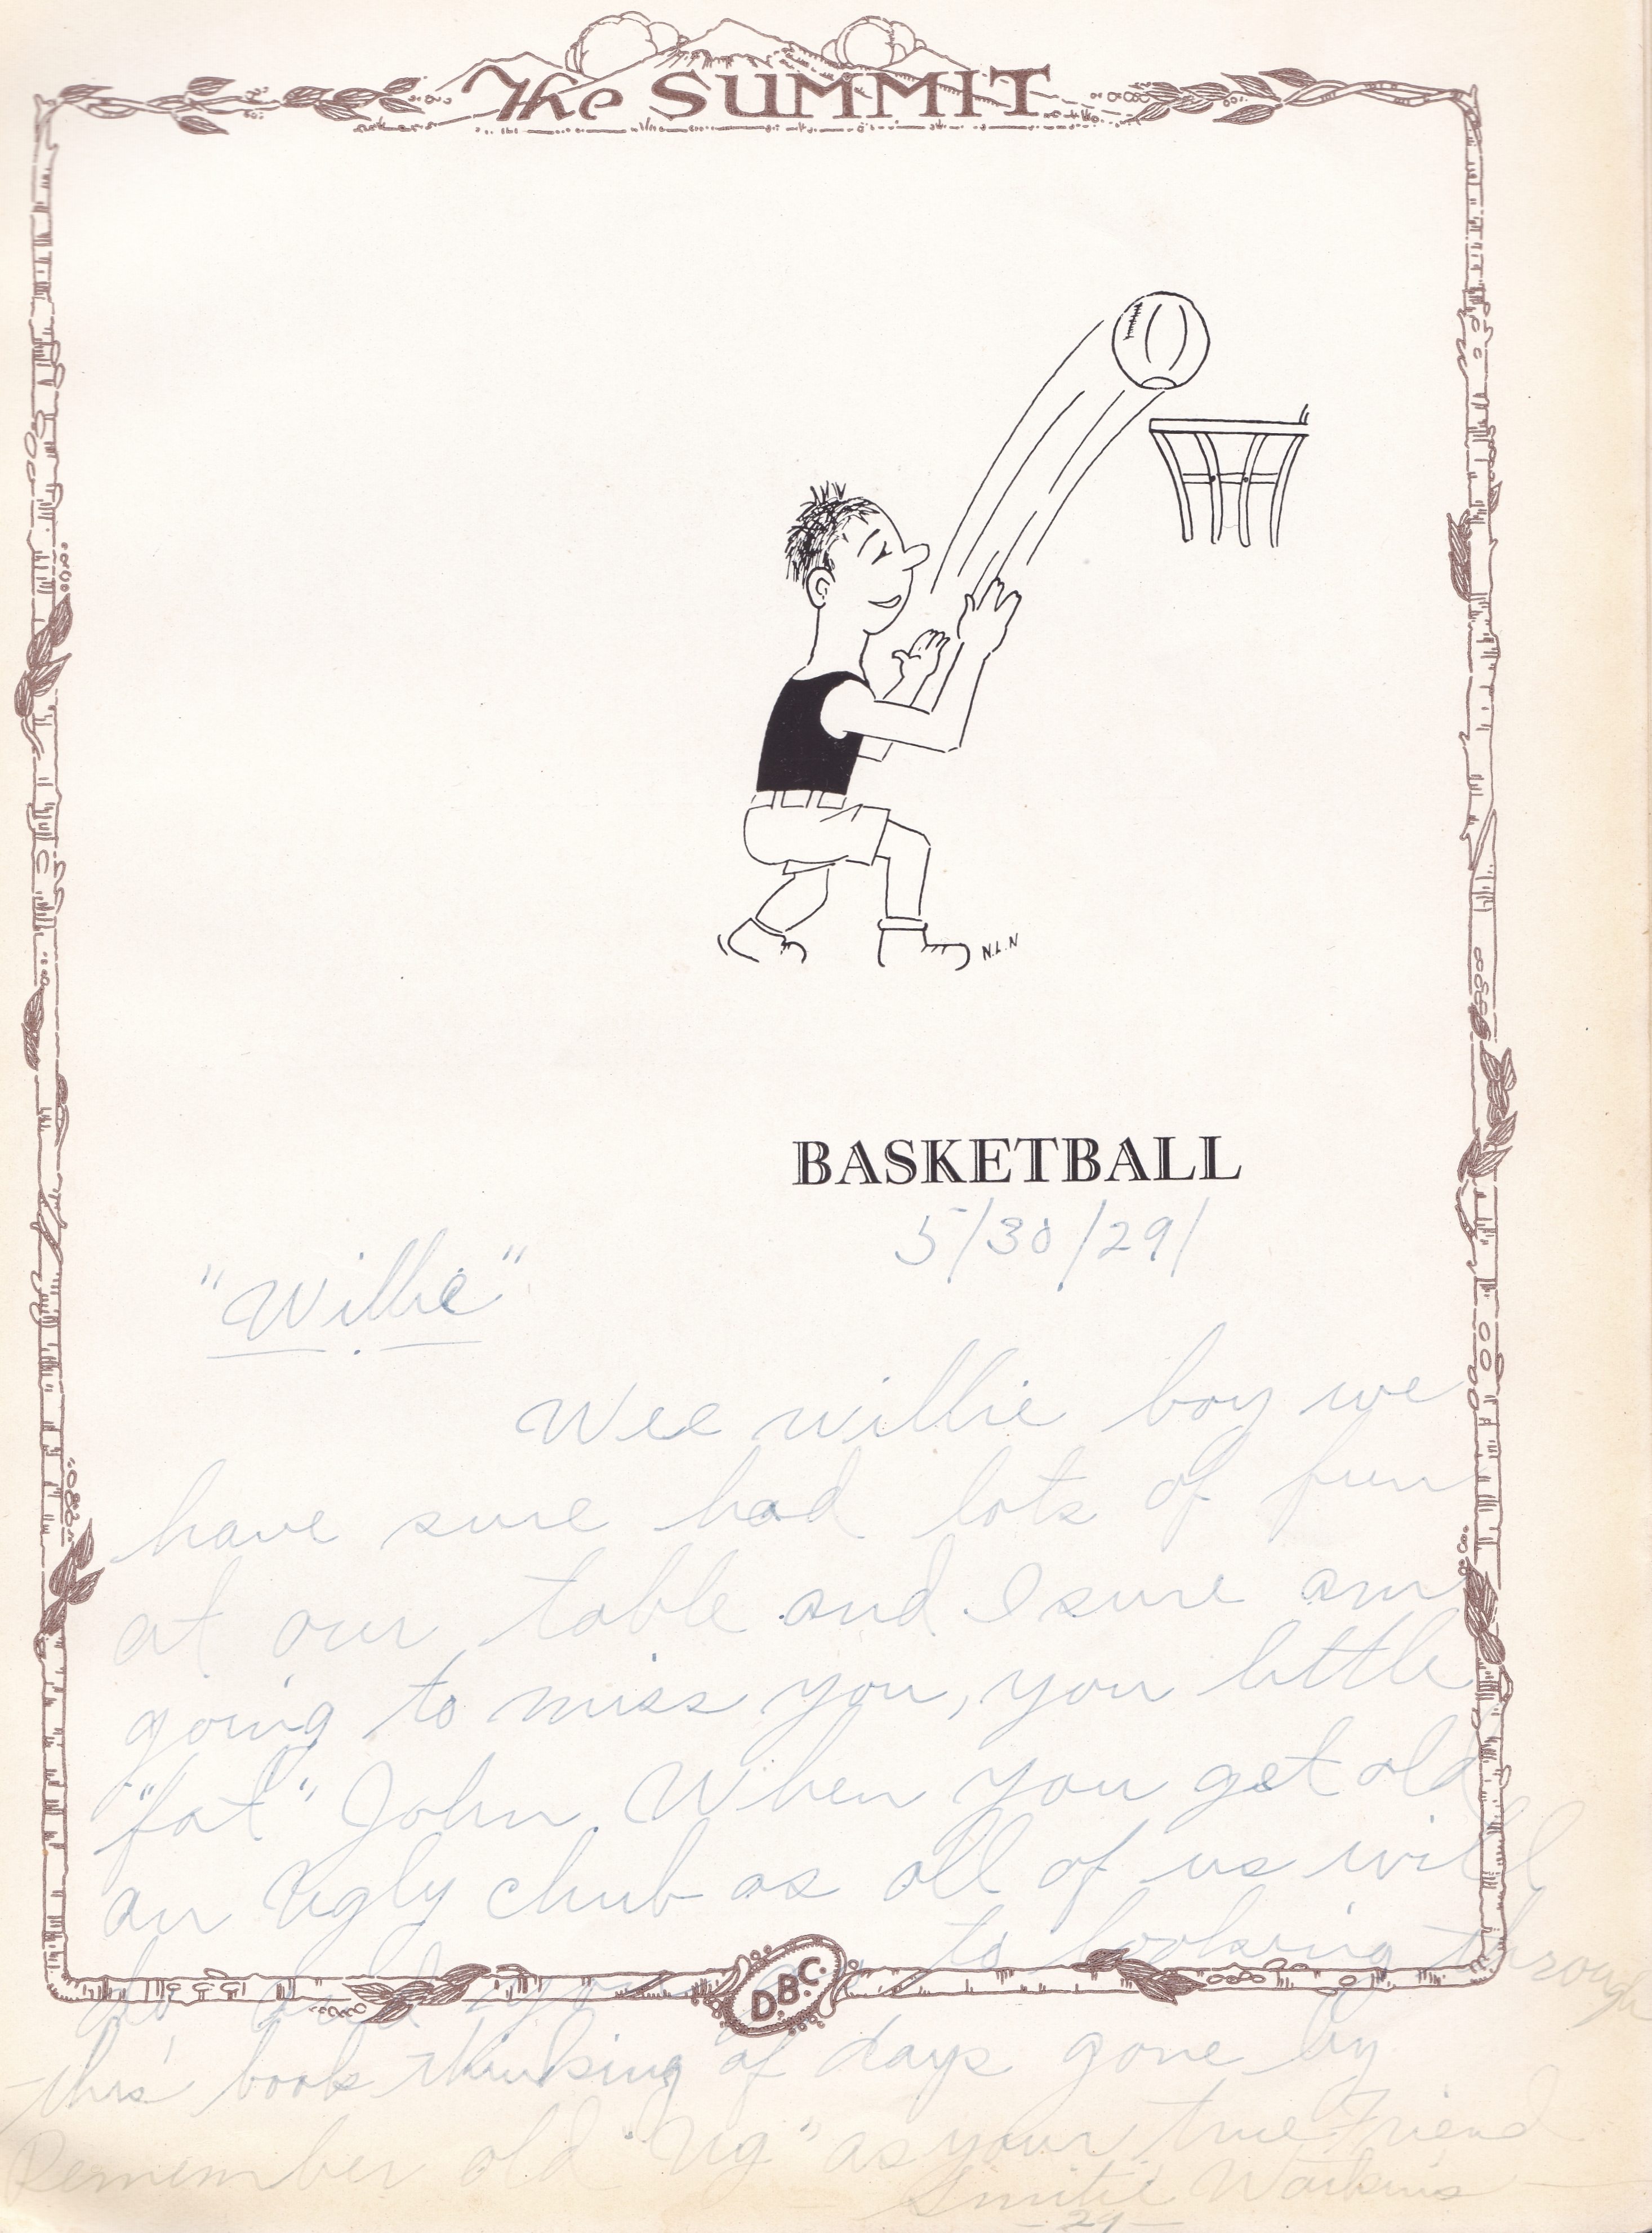 The SUMMIT
N.L.N
BASKETBALL
5/30/29/
"Willie"
Wee willie boy we
have sure had lots of fun
at our table and I sure am
going to miss you, you little
"fat" John. When you get old
an Ugly chub as all of us will
to looking through
D.B.C.
this book thinking of days gone by
Remember old "Ug" as your true Friend
Smitie Watkins
- 29 -